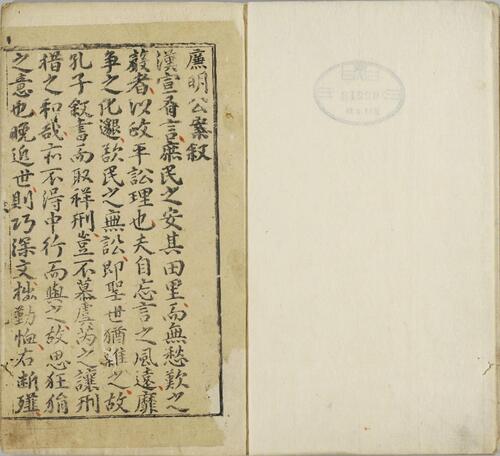 廉明公案叙
漢宣有言庶民之安其田里而無愁歎之
聲者以政平訟理也夫自忘言之風遠靡
争之化邈欲民之無訟即聖世猶難之故
孔子叙書而取祥刑豈不慕虞芮之讓刑
措之和哉亦不得中行而與之故思狂狷
之意也晚近世則巧深文拙勤恤右断